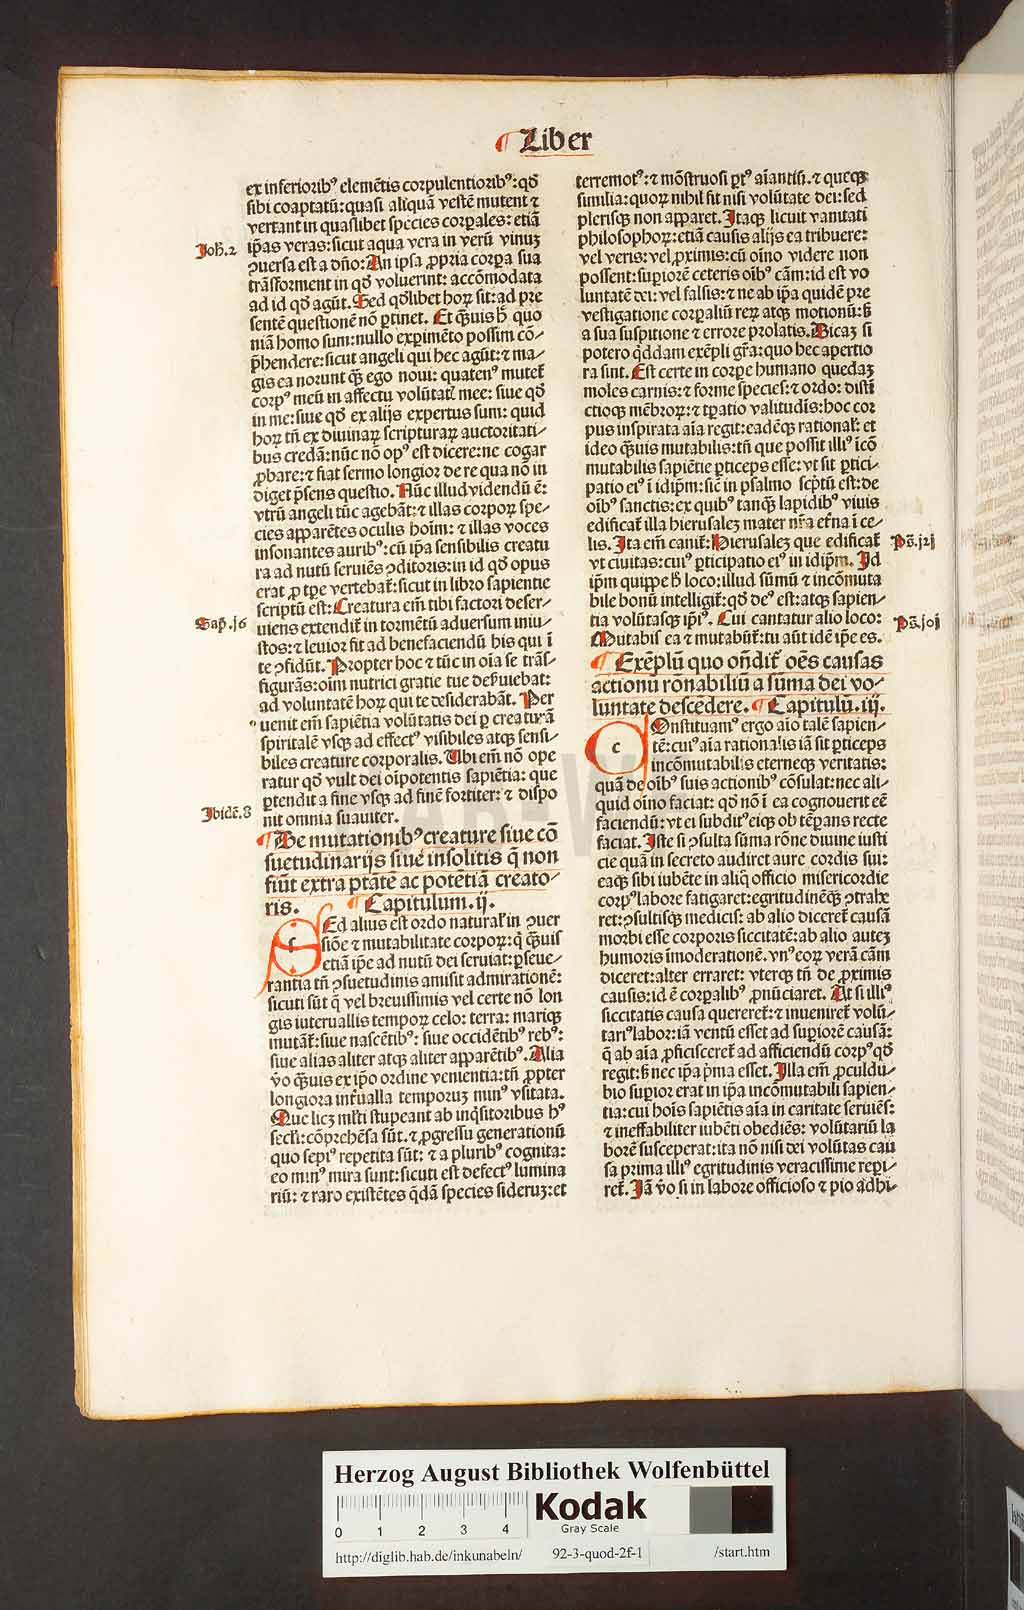 ¶ Liber
ex inferioribꝰ elemētis corpulentioribꝰ: qḋ
sibi coaptatū: quasi aliquā vestē mutent ⁊
vertant in quaslibet species corꝑales: etiā
Joh̄. 2
ip̄as veras: sicut aqua vera in verū vinuꝫ
ꝯuersa est a dn̄o: An ipsa ꝓpria corꝑa sua
trāsforment in qḋ voluerint: accōmodata
ad id qḋ agūt. Sed qḋlibet hoꝝ sit: ad pre
sentē questionē nō ꝑtinet. Et q̄uis h̄ quo
niā homo sum: nullo exꝑimēto possim cō⸗
p̄hendere: sicut angeli qui hec agūt: ⁊ ma⸗
gis ea norunt q̄ꝫ ego noui: quatenꝰ mutet̄
corpꝰ meū in affectu volūtat̄ mee: siue qḋ
in me: siue qḋ ex alijs expertus sum: quid
hoꝝ tn̄ ex diuinaꝝ scripturaꝝ auctoritati⸗
bus credā: nūc nō opꝰ est dicere: ne cogar
ꝓbare: ⁊ fiat sermo longior de re qua nō in
diget p̄sens questio. Nūc illud videndū ē:
vtrū angeli tūc agebāt: ⁊ illas corpoꝝ spe⸗
cies apparētes oculis hoīm: ⁊ illas voces
insonantes auribꝰ: cū ip̄a sensibilis creatu
ra ad nutū seruiēs ꝯditoris: in id qḋ opus
erat ꝓ tꝑe vertebat̄: sicut in libro sapientie
scriptū est: Creatura em̄ tibi factori deser⸗
Sap̄. j6
uiens extendit̄ in tormētū aduersum iniu⸗
stos: ⁊ leuior fit ad benefaciendū his qui ī
te ꝯfidūt. Propter hoc ⁊ tūc in oīa se trās⸗
figurās: oīm nutrici gratie tue des̄uiebat:
ad voluntatē hoꝝ qui te desiderabāt. Per
uenit em̄ sapiētia volūtatis dei ꝑ creaturā
spiritalē vsqꝫ ad effectꝰ visibiles atqꝫ sensi⸗
biles creature corporalis. Ubi em̄ nō ope
ratur qḋ vult dei oīpotentis sapiētia: que
ꝑtendit a fine vsqꝫ ad finē fortiter: ⁊ dispo
Ibidē. 8
nit omnia suauiter.
¶ De mutationibꝰ creature siue cō
suetudinarijs siue insolitis q̄ non
fiūt extra ptātē ac potētiā creato⸗
ris. ¶ Capitulum. ij.
SEd alius est ordo natural̄ in ꝯuer
siōe ⁊ mutabilitate corpoꝝ: q̄ q̄uis
etiā ip̄e ad nutū dei seruiat: ꝑseue⸗
rantia tn̄ ꝯsuetudinis amisit admirationē:
sicuti sūt q̄ vel breuissimis vel certe nō lon
gis interuallis tempoꝝ celo: terra: mariqꝫ
mutāt̄: siue nascētibꝰ: siue occidētibꝰ rebꝰ:
siue alias aliter atqꝫ aliter apparētibꝰ. Alia
v̄o q̄uis ex ip̄o ordine venientia: tn̄ ꝓpter
longiora int̄ualla temporuꝫ minꝰ vsitata.
Que licꝫ ml̄ti stupeant ab inq̄sitoribus hꝰ
secl̄i: cōprehēsa sūt. ⁊ ꝓgressu generationū
quo sepiꝰ repetita sūt: ⁊ a pluribꝰ cognita:
eo minꝰ mira sunt: sicuti est defectꝰ lumina
riū: ⁊ raro existētes q̄dā species sideruꝫ: et
terremotꝰ: ⁊ mōstruosi ꝑtꝰ aīantiū. ⁊ queqꝫ
similia: quoꝝ nihil fit nisi volūtate dei: sed
plerisqꝫ non apparet. Itaqꝫ licuit vanitati
philosophoꝝ: etiā causis alijs ea tribuere:
vel veris: vel ꝓximis: cū oīno videre non
possent: suꝑiorē ceteris oībꝰ cām: id est vo
luntatē dei: vel falsis: ⁊ ne ab ip̄a quidē ꝑue
vestigatione corꝑaliū reꝝ atqꝫ motionū: s̄
a sua suspitione ⁊ errore prolatis. Dicaꝫ si
potero q̄ddam exēpli gr̄a: quo hec apertio
ra sint. Est certe in corꝑe humano quedaꝫ
moles carnis: ⁊ forme species: ⁊ ordo: disti
ctioqꝫ mēbroꝝ: ⁊ tꝑatio valitudīs: hoc cor
pus inspirata aīa regit: eadēqꝫ rational̄: et
ideo q̄uis mutabilis: tn̄ que possit illiꝰ īcō
mutabilis sapiētie ꝑticeps esse: vt sit ꝑtici⸗
patio eiꝰ ī idip̄m: sic̄ in psalmo sc̄ptū est: de
oībꝰ sanctis: ex quibꝰ tanqꝫ lapidibꝰ viuis
edificat̄ illa hierusaleꝫ mater nr̄a et̄na ī ce⸗
lis. Ita em̄ canit̄: Hierusaleꝫ que edificat̄
Ps̄. j2j
vt ciuitas: cuiꝰ ꝑticipatio eiꝰ in idip̄m. Id
ip̄m quippe h̄ loco: illud sūmū ⁊ incōmuta
bile bonū intelligit̄: qḋ deꝰ est: atqꝫ sapien⸗
tia volūtasqꝫ ip̄iꝰ. Cui cantatur alio loco:
Ps̄. joj
Mutabis ea ⁊ mutabūt̄: tu aūt idē ip̄e es.
¶ Exēplū quo on̄dit̄ oēs causas
actionū rōnabiliū a sūma dei vo⸗
luntate descēdere. ¶ Capitulū. iij.
COnstituamꝰ ergo aīo talē sapien⸗
tē: cuiꝰ aīa rationalis iā sit ꝑticeps
incōmutabilis eterneqꝫ veritatis:
quā de oībꝰ suis actionibꝰ cōsulat: nec ali⸗
quid oīno faciat: qḋ nō ī ea cognouerit eē
faciendū: vt ei subditꝰ eiqꝫ obtēꝑans recte
faciat. Iste si ꝯsulta sūma rōne diuine iusti
cie quā in secreto audiret aure cordis sui:
eaqꝫ sibi iubēte in aliq̄ officio misericordie
corpꝰ labore fatigaret: egritudinēqꝫ ꝯtrahe
ret: ꝯsultisqꝫ medicis: ab alio diceret̄ causā
morbi esse corporis siccitatē: ab alio auteꝫ
humoris īmoderationē. vnꝰ eoꝝ verā cām
diceret: alter erraret: vterqꝫ tn̄ de ꝓximis
causis: id ē corꝑalibꝰ ꝓnūciaret. At si illiꝰ
siccitatis causa quereret̄: ⁊ inueniret̄ volū⸗
tariꝰ labor: iā ventū esset ad suꝑiorē causā:
q̄ ab aīa ꝓficisceret̄ ad afficiendū corpꝰ qḋ
regit: s̄ nec ip̄a p̄ma esset. Illa em̄ ꝓculdu⸗
bio suꝑior erat in ip̄a incōmutabili sapien⸗
tia: cui hoīs sapiētis aīa in caritate seruiēs:
⁊ ineffabiliter iubēti obediēs: volūtariū la
borē susceperat: ita nō nisi dei volūtas cau
sa prima illiꝰ egritudinis veracissime reꝑi⸗
ret̄. Jā v̄o si in labore officioso ⁊ pio adhi⸗
Herzog August Bibliothek Wolfenbüttel
0 1 2 3 4
Kodak
Gray Scale
http://diglib.hab.de/inkunabeln/ 92-3-quod-2f-1 /start.htm